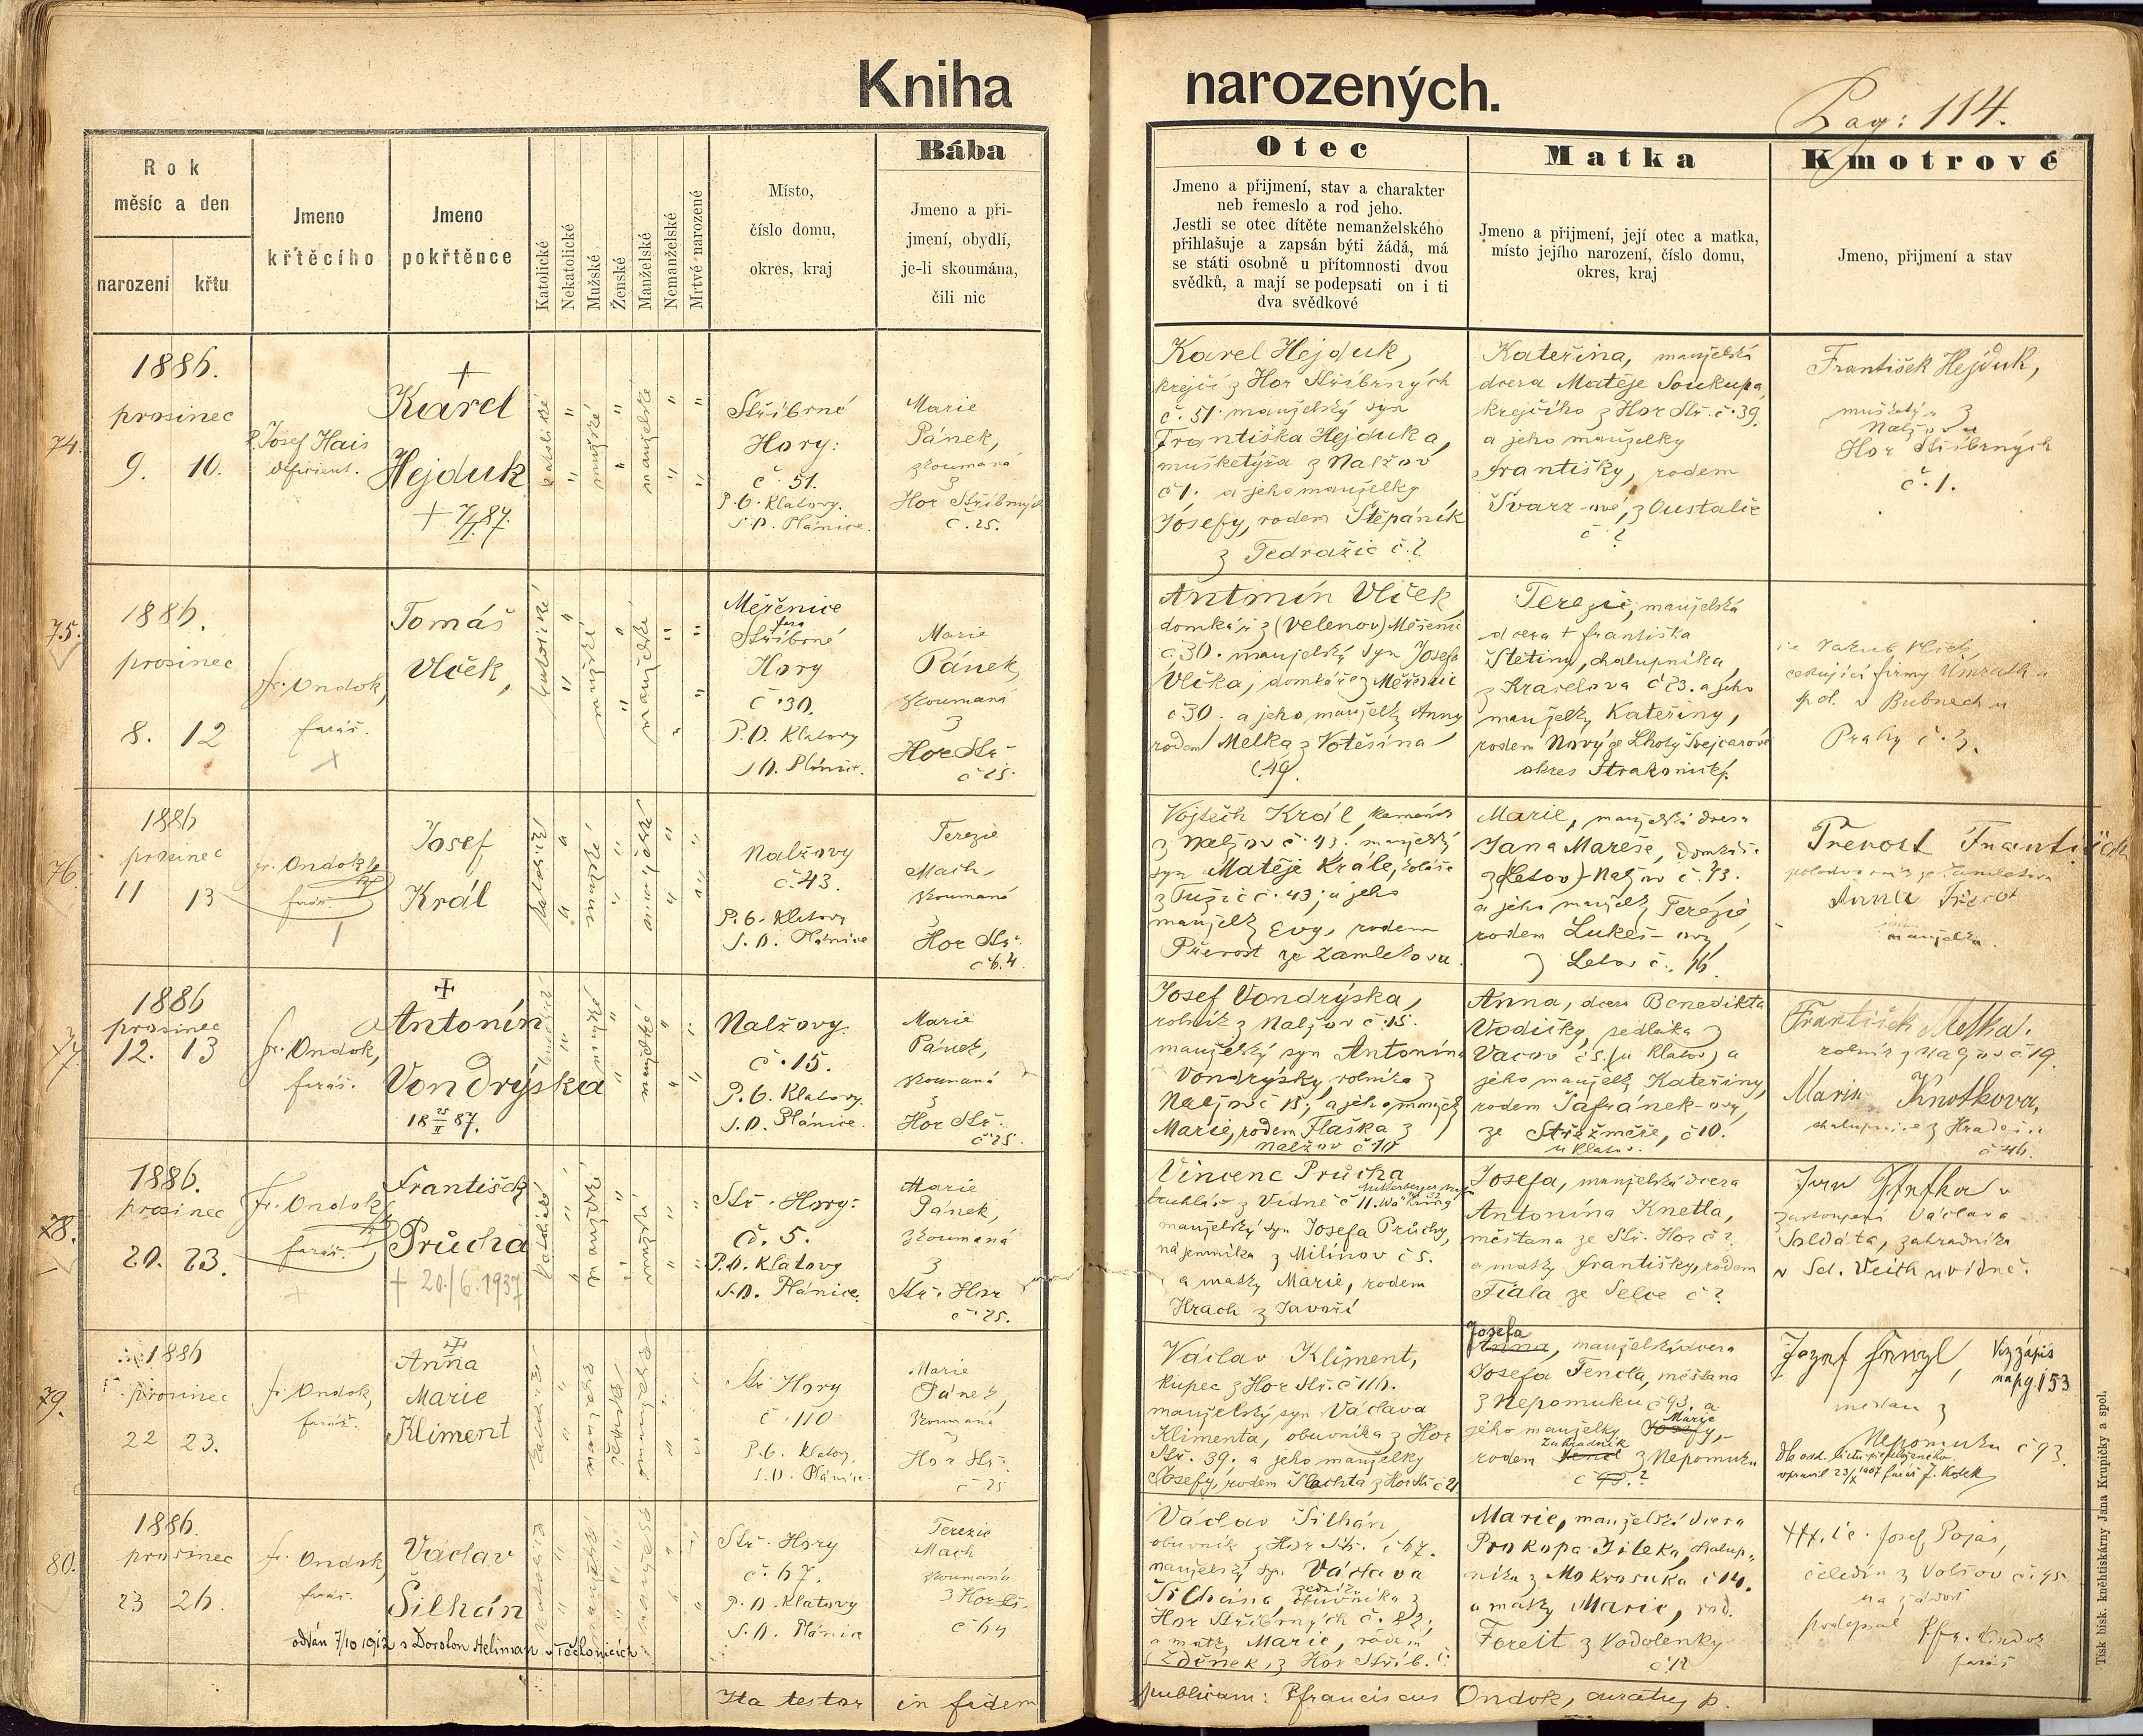 Kniha narozených.
Pag: 114.
Rok
měsíc a den
narození křtu
Jmeno
křtěcího
Jmeno
pokřtěnce
Katolické
Nekatolické
Mužské
Ženské
Manželské
Nemanželské
Mrtvé narozené
Místo,
číslo domu,
okres, kraj
Bába
Jmeno a při-
jmení, obydlí,
je-li skoumána,
čili nic
Otec
Jmeno a přijmení, stav a charakter
neb řemeslo a rod jeho.
Jestli se otec dítěte nemanželského
přihlašuje a zapsán býti žádá, má
se státi osobně u přítomnosti dvou
svědků, a mají se podepsati on i ti
dva svědkové
Matka
Jmeno a přijmení, její otec a matka,
místo jejího narození, číslo domu,
okres, kraj
Kmotrové
Jmeno, přijmení a stav
74.
1886.
prosinec
9. 10.
P. Josef Hais
deficient.
+
Karel
Hejduk
katolické
mužské
manželské
Stříbrné
Hory:
č. 51.
P.O. Klatovy.
S.O. Plánice.
Marie
Pánek,
zkoumaná
z
Hor Stříbrných
č. 25.
Karel Hejduk,
krejčí z Hor Stříbrných
č. 51. manželský syn
Františka Hejduka,
mušketýra z Nalžov
č 1. a jeho manželky
Josefy, rodem Štěpáník
z Tedražic č.?
Kateřina, manželská
dcera Matěje Soukupa,
krejčího z Hor Stř. č. 39.
a jeho manželky
Františky, rodem
Švarz-ové, z
č ?
František Hejduk,
mušketýr z
Nalžov u
Hor Stříbrných
č. 1.
75.
1886.
prosinec
8. 12
fr. Ondok,
farář.
Tomáš
Vlček,
katolické
mužské
manželské
Měřenice
fara
Stříbrné
Hory
č 30.
P.O. Klatovy
S.O. Plánic.
Marie
Pánek,
zkoumaná
z
Hor Stř.
č 25.
Antonín Vlček,
domkář z (Velenov) Měřenic
č. 30. manželský syn Josefa
Vlčka, domkáře z Měřenic
č 30. a jeho manželky Anny
rodem Melka z Votěšína
č. 49.
Terezie, manželská
dcera + Františka
Štětiny, chalupníka
z Kraselova č 23. a jeho
manželky Kateřiny,
rodem Nový ze Lhoty Švejcarové
okres Strakonický.
Jakub Vlček,
cestující firmy Umrath a
spol. v Bubnech u
Prahy č. 3.
76.
1886
prosinec
11 13
fr. Ondok
farář.
Josef
Král
katolické
mužské
manželské
Nalžovy
č. 43.
P.O. Klatovy
S.O. Plánice
Terezie
Mach,
zkoumaná
z
Hor Stř.
č 64
Vojtěch Král, kameník
z Nalžov č. 43. manželský
syn Matěje Krále,
z Tužic č. 43, a jeho
manželky Evy, rodem
Převost ze Zamlekova.
Marie, manželská dcera
Jana Mareše, domkáře
z (Letov) Nalžov č. 43.
a jeho manželky Terezie,
rodem Lukeš-ovy,
z Letov č. 16.
Převost František
ze Zamlekova
Anna Převost
manželka.
77.
1886
prosinec
12. 13
fr. Ondok,
farář.
Antonín
Vondrýska
18 25/II 87.
katolické
mužské
manželské
Nalžovy.
č. 15.
P.O. Klatovy.
S.O. Plánice.
Marie
Pánek,
zkoumaná
z
Hor Stř.
č 25.
Josef Vondrýska,
rolník z Nalžov č. 15.
manželský syn Antonína
Vondrýsky, rolníka z
Nalžov č 15, a jeho manželky
Marie, rodem Flaška z
Nalžov č. 10
Anna, dcera Benedikta
Vodičky, sedláka z
Vacov č 5. (u Klatov) a
jeho manželky Kateřiny,
rodem Šafránek-ovy,
ze Střežměře, č 10.
u Klatov.
František Melka.
rolník z Nalžov č 19.
Marie Knotkova,
chalupnice z
č 46.
78.
1886.
prosinec
20. 23.
Fr. Ondok
farář.
František
Průcha
+ 20./6. 1937
katolické
mužské
manželské
Stř. Hory:
č. 5.
P.O. Klatovy
S.O. Plánice.
Marie
Pánek,
zkoumaná
z
Stř. Hor
č 25.
Vincenc Průcha
truhlář z Vídně č 11.
manželský syn Josefa Průchy,
nájemníka z Milínov č 5.
a matky Marie, rodem
Hrach z Javoří
Josefa, manželská dcera
Antonína Knetla,
měštana ze Stř. Hor č ?
a matky Františky, rodem
Fiala ze Selce č ?
v
zastoupení Václava
Soldáta, zahradníka
v Sct. Veith u Vídně.
79.
1886
prosinec
22 23.
fr. Ondok,
farář.
Anna
Marie
Kliment
Stř. Hory
č. 110
P.O. Klatov.
S.O. Plánice.
Marie
Pánek,
zkoumaná
z
Hor Stř.
č 25
Václav Kliment,
kupec z Hor Stř. č 116.
manželský syn Václava
Klimenta, obuvníka z Hor
Stř. 39. a jeho manželky
Josefy, rodem Šlachta z Hor Stř. č 21
Josefa
Anna, manželská dcera
Josefa Tencla, měštana
z Nepomuku č 93. a
jeho manželky Josefy,
Marie
Zahradník
rodem Tencl z Nepomuku
č 93.?
Viz zápis
na pg. 153
mešťan z
Nepomuku č 93.
opravil 23/X 1907 farář J. Kosek
80.
1886.
prosinec
23 26.
fr. Ondok,
farář.
Václav
Šilhán
oddán 7/10 1912 s Dorotou Heliman v Těchonicích
Stř. Hory
č. 67.
P.O. Klatovy
S.O. Plánice
Terezie
Mach
zkoumaná
z Hor Stř.
č 64
Václav Šilhán,
obuvník z Hor Stř. č 67.
manželský syn Václava
Šilhána, obuvníka z
zedníka
Hor Stříbrných č. 82,
a matky Marie, rodem
Zděnek, z Hor Stříb. č.
Marie, manželská dcera
Prokopa Jileka, chalup-
níka z Mokrosuka č 14.
a matky Marie, rod.
Foreit z Vodolenky
č 12
+++. Josef Pojar,
čeledín z Volšov č. 95.
na žádost
podepsal P. fr. Ondok
farář
Ita testor in fidem publicam: P franciscus Ondok, curatus p.
Tisk bisk. kněhtiskárny Jana Krupičky a spol.